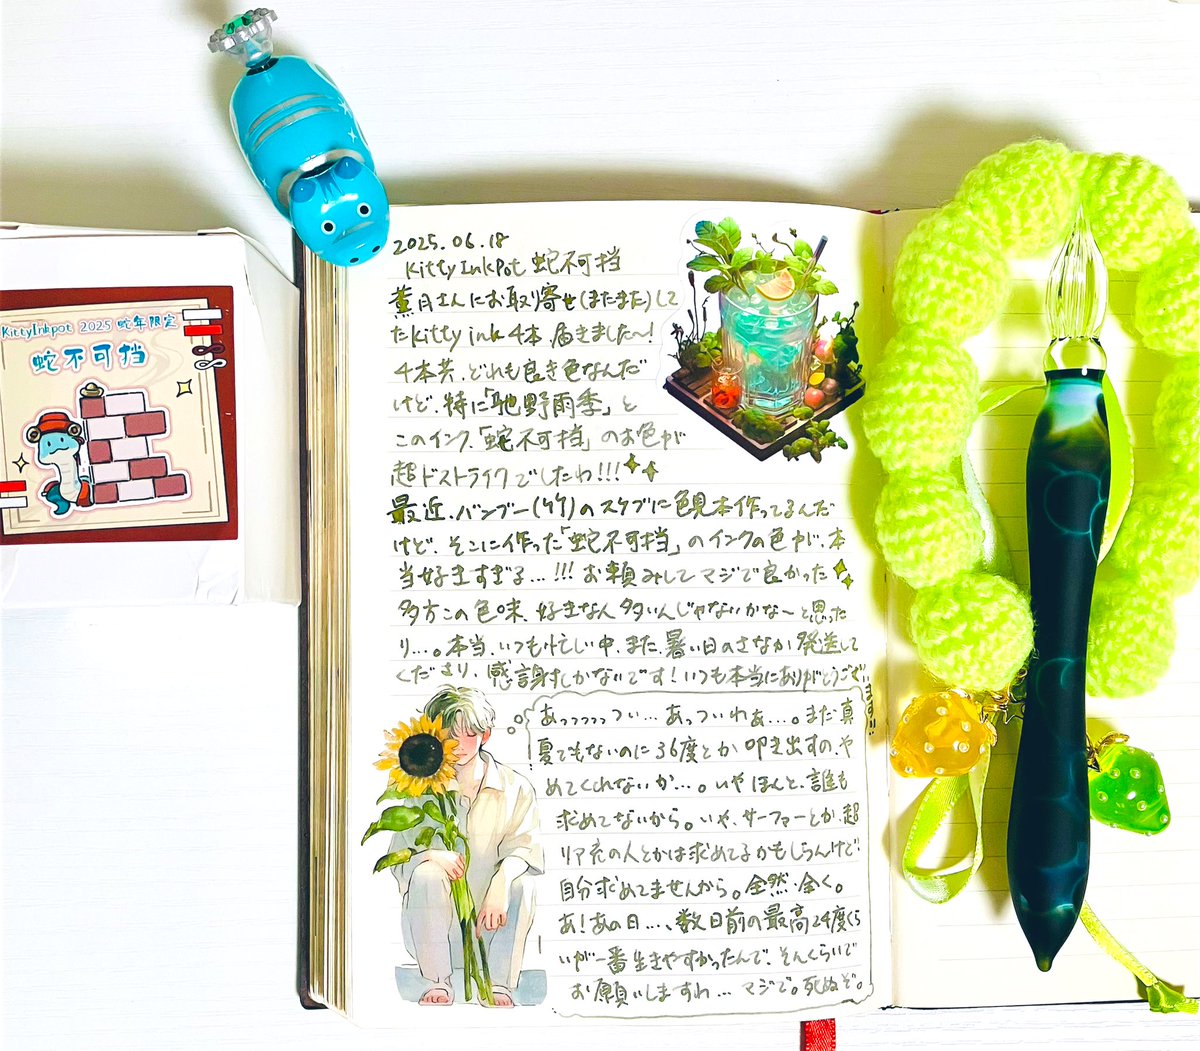 KittyInkpot 2025 蛇年限定
蛇不可挡
2025.06.18
Kitty InkPot 蛇不可挡
薫月さんにお取り寄せ(またまた)し
たkitty ink 4本、届きました〜!
4本共、どれも良き色なんだ
けど、特に「馳野雨季」と
このインク、「蛇不可挡」のお色が
超ドストライクでしたわ!!!
最近、バンブー(竹)のスケブに色見本作ってるんだ
けど、そこに作った「蛇不可挡」のインクの色が、本
当好きすぎる...!!! お頼みしてマジで良かった
多方この色味、好きなん多いんじゃないかな〜と思った
り...。本当、いつも忙しい中、また、暑い日のさなか発送して
くださり、感謝しかないです!いつも本当にありがとうござい
ます!!
あっつつつつつい...あっついわぁ...。まだ真
夏でもないのに36度とか叩き出すの、や
めてくれないか...。いやほんと、誰も
求めてないから。いや、サーファーとか、超
リア充の人とかは求めてるかもしらんけど、
自分求めてませんから。全然・全く。
あ!あの日...、数日前の最高24度くら
いが一番生きやすかったんで、そんくらいで
お願いしますわ...マジで。死ぬぞ。